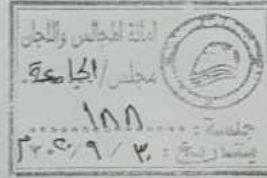 امانة المجالس واللجان
مجلس / الجامعة
جلسة : ١٨٨
بتاريخ : ٣ / ٩ / ٢٠٢٠م